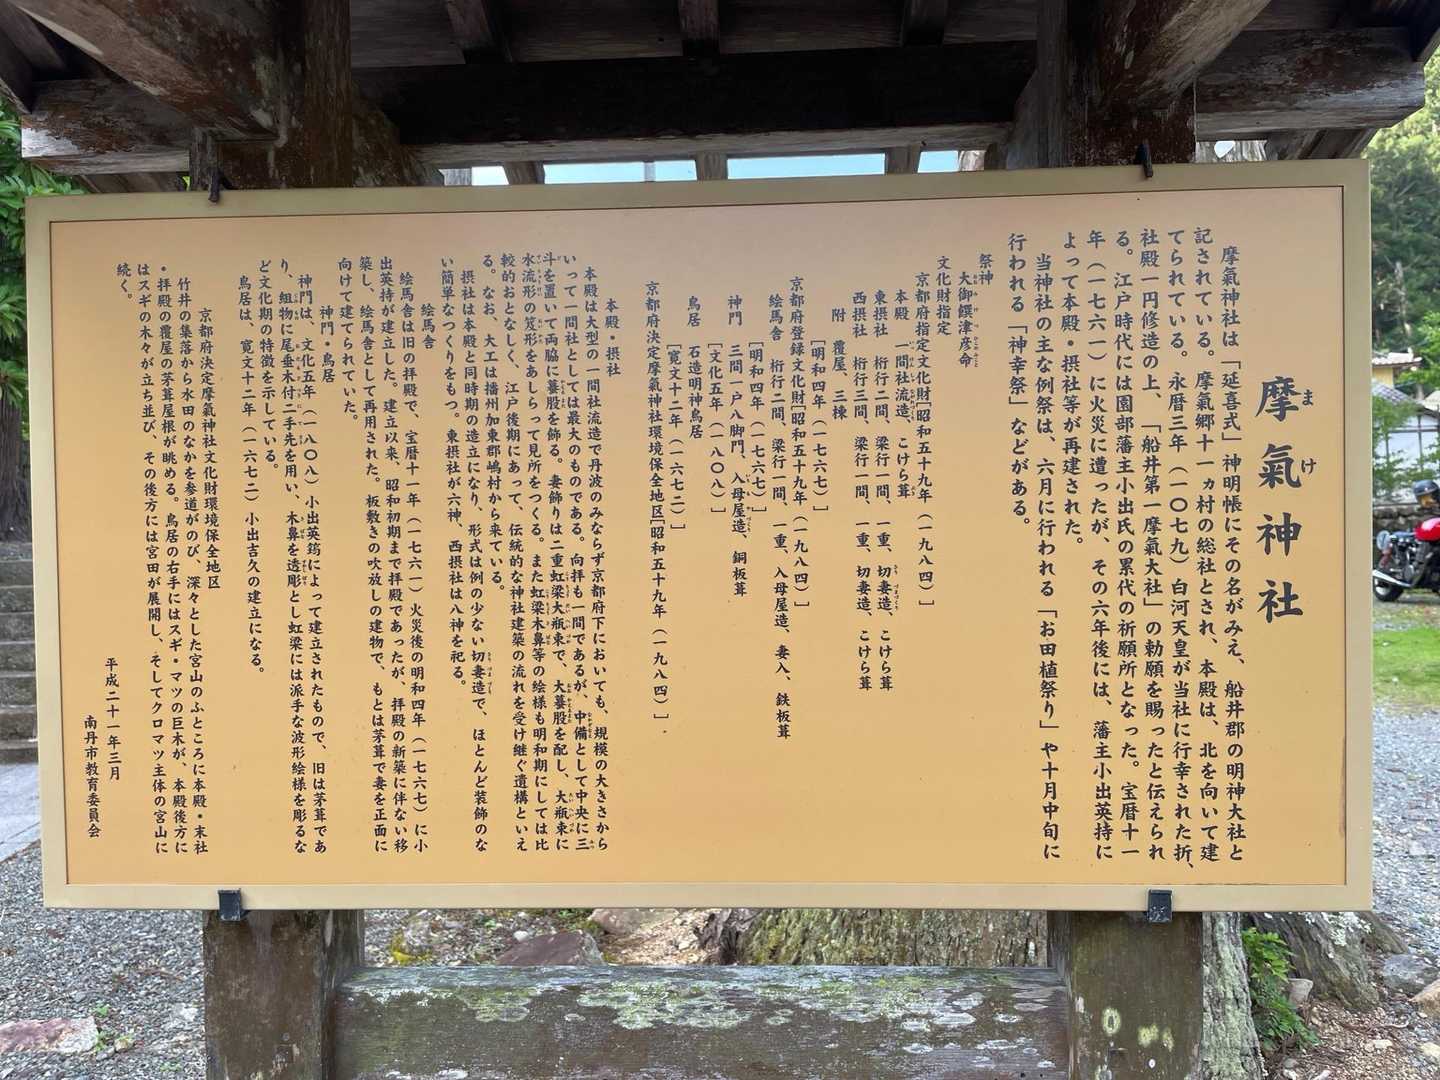 摩氣神社
まけ
摩氣神社は「延喜式」神明帳にその名がみえ、船井郡の明神大社と
記されている。摩氣郷十一ヵ村の総社とされ、本殿は、北を向いて建
てられている。永暦三年（一〇七九）白河天皇が当社に行幸された折、
社殿一円修造の上、「船井第一摩氣大社」の勅願を賜ったと伝えられ
る。江戸時代には園部藩主小出氏の累代の祈願所となった。宝暦十一
年（一七六一）に火災に遭ったが、その六年後には、藩主小出英持に
よって本殿・摂社等が再建された。
当神社の主な例祭は、六月に行われる「お田植祭り」や十月中旬に
行われる「神幸祭」などがある。
祭神
大御饌津彦命
文化財指定
京都府指定文化財［昭和五十九年（一九八四）］
本殿　一間社流造、こけら葺
東摂社　桁行二間、梁行一間、一重、切妻造、こけら葺
西摂社　桁行三間、梁行一間、一重、切妻造、こけら葺
附　覆屋、三棟
［明和四年（一七六七）］
京都府登録文化財［昭和五十九年（一九八四）］
絵馬舎　桁行二間、梁行一間、一重、入母屋造、妻入、鉄板葺
［明和四年（一七六七）］
神門　三間一戸八脚門、入母屋造、銅板葺
［文化五年（一八〇八）］
鳥居　石造明神鳥居
［寛文十二年（一六七二）］
京都府決定摩氣神社環境保全地区［昭和五十九年（一九八四）］
本殿・摂社
本殿は大型の一間社流造で丹波のみならず京都府下においても、規模の大きさから
いって一間社としては最大のものである。向拝も一間であるが、中備として中央に三
斗を置いて両脇に蟇股を飾る。妻飾りは二重虹梁大瓶束で、大蟇股を配し、大瓶束に
水流形の笈形をあしらって見所をつくる。また虹梁木鼻等の絵様も明和期にしては比
較的おとなしく、江戸後期にあって、伝統的な神社建築の流れを受け継ぐ遺構といえ
る。なお、大工は播州加東郡嶋村から来ている。
摂社は本殿と同時期の造立になり、形式は例の少ない切妻造で、ほとんど装飾のな
い簡単なつくりをもつ。東摂社が六神、西摂社は八神を祀る。
絵馬舎
絵馬舎は旧の拝殿で、宝暦十一年（一七六一）火災後の明和四年（一七六七）に小
出英持が建立した。建立以来、昭和初期まで拝殿であったが、拝殿の新築に伴ない移
築し、絵馬舎として再用された。板敷きの吹放しの建物で、もとは茅葺で妻を正面に
向けて建てられていた。
神門・鳥居
神門は、文化五年（一八〇八）小出英筠によって建立されたもので、旧は茅葺であ
り、組物に尾垂木付二手先を用い、木鼻を透彫とし虹梁には派手な波形絵様を彫るな
ど文化期の特徴を示している。
鳥居は、寛文十二年（一六七二）小出吉久の建立になる。
京都府決定摩氣神社文化財環境保全地区
竹井の集落から水田のなかを参道がのび、深々とした宮山のふところに本殿・末社
・拝殿の覆屋の茅葺屋根が眺める。鳥居の右手にはスギ・マツの巨木が、本殿後方に
はスギの木々が立ち並び、その後方には宮田が展開し、そしてクロマツ主体の宮山に
続く。
平成二十一年三月
南丹市教育委員会